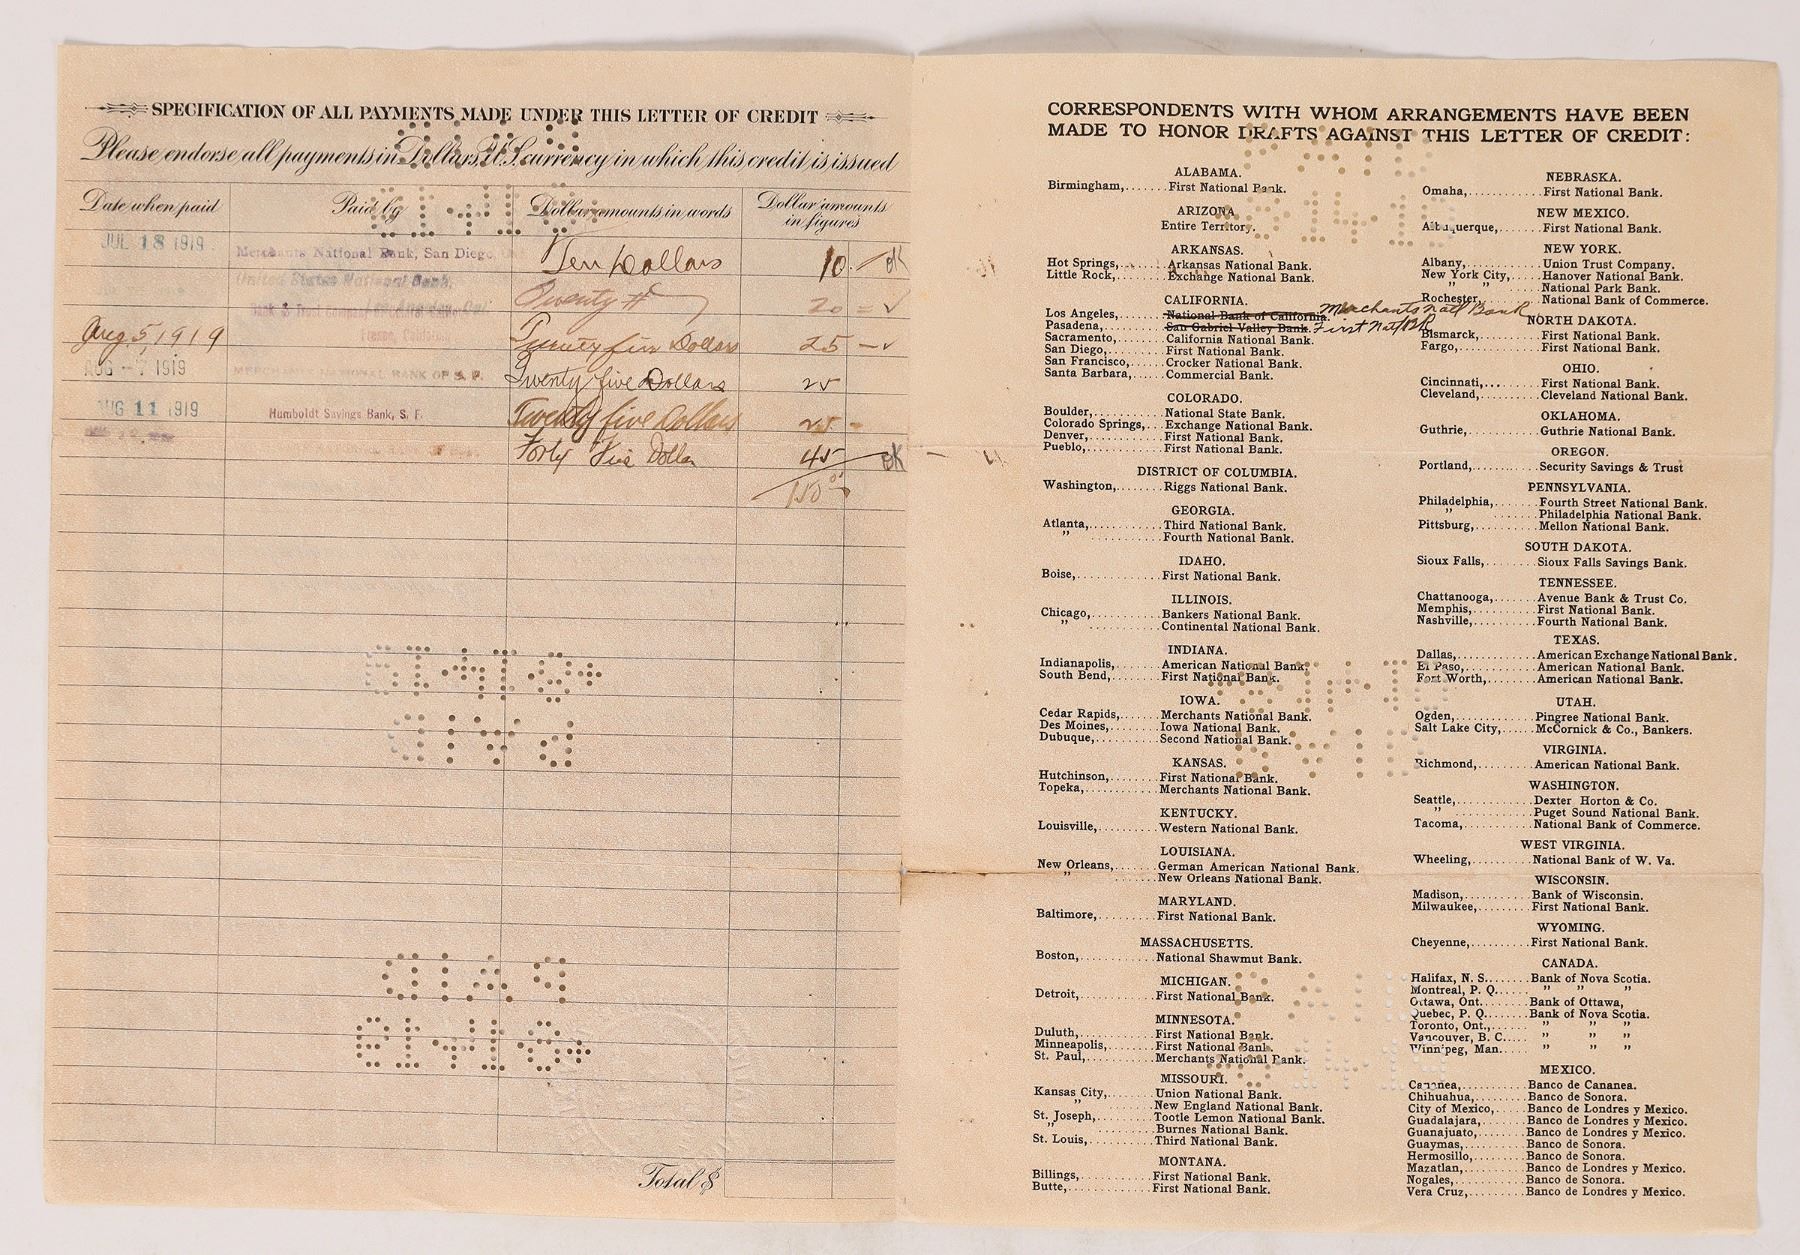 SPECIFICATION OF ALL PAYMENTS MADE UNDER THIS LETTER OF CREDIT
Please endorse all payments in Dollars U.S. currency in which this credit is issued
Date when paid Paid by Dollar amounts in words Dollar amounts in figures
JUL 18 1919 Merchants National Bank, San Diego, Ten Dollars 10. — OK
United States National Bank, Los Angeles, Cal. Twenty # 20 = ✓
Bank & Trust Company
Aug 5, 1919 Fresno, California Twenty five Dollars 25 — ✓
AUG 1919 MERCHANTS NATIONAL BANK OF S. F. Twenty five Dollars 25
AUG 11 1919 Humboldt Savings Bank, S. F. Twenty five Dollars 25 -
Forty Five Dollar 45 OK
150
Total $
PAID
8-14-19
PAID
8-14-19
PAID
8-14-19
CORRESPONDENTS WITH WHOM ARRANGEMENTS HAVE BEEN
MADE TO HONOR DRAFTS AGAINST THIS LETTER OF CREDIT:
ALABAMA.
Birmingham,......First National Bank.
ARIZONA
Entire Territory.
ARKANSAS.
Hot Springs,.......Arkansas National Bank.
Little Rock,.......Exchange National Bank.
CALIFORNIA.
Los Angeles,.......National Bank of California. Merchants Natl Bank
Pasadena,.........San Gabriel Valley Bank. First Natl Bk
Sacramento,.......California National Bank.
San Diego,........First National Bank.
San Francisco,....Crocker National Bank.
Santa Barbara,....Commercial Bank.
COLORADO.
Boulder,..........National State Bank.
Colorado Springs,...Exchange National Bank.
Denver,...........First National Bank.
Pueblo,...........First National Bank.
DISTRICT OF COLUMBIA.
Washington,.......Riggs National Bank.
GEORGIA.
Atlanta,..........Third National Bank.
" ..........Fourth National Bank.
IDAHO.
Boise,............First National Bank.
ILLINOIS.
Chicago,..........Bankers National Bank.
" ..........Continental National Bank.
INDIANA.
Indianapolis,.....American National Bank.
South Bend,.......First National Bank.
IOWA.
Cedar Rapids,.....Merchants National Bank.
Des Moines,.......Iowa National Bank.
Dubuque,..........Second National Bank.
KANSAS.
Hutchinson,.......First National Bank.
Topeka,...........Merchants National Bank.
KENTUCKY.
Louisville,.......Western National Bank.
LOUISIANA.
New Orleans,......German American National Bank.
" ......New Orleans National Bank.
MARYLAND.
Baltimore,........First National Bank.
MASSACHUSETTS.
Boston,...........National Shawmut Bank.
MICHIGAN.
Detroit,..........First National Bank.
MINNESOTA.
Duluth,...........First National Bank.
Minneapolis,......First National Bank.
St. Paul,.........Merchants National Bank.
MISSOURI.
Kansas City,......Union National Bank.
" ......New England National Bank.
St. Joseph,.......Tootle Lemon National Bank.
" .......Burnes National Bank.
St. Louis,........Third National Bank.
MONTANA.
Billings,.........First National Bank.
Butte,............First National Bank.
NEBRASKA.
Omaha,............First National Bank.
NEW MEXICO.
Albuquerque,......First National Bank.
NEW YORK.
Albany,...........Union Trust Company.
New York City,....Hanover National Bank.
" " ....National Park Bank.
Rochester,........National Bank of Commerce.
NORTH DAKOTA.
Bismarck,.........First National Bank.
Fargo,............First National Bank.
OHIO.
Cincinnati,.......First National Bank.
Cleveland,........Cleveland National Bank.
OKLAHOMA.
Guthrie,..........Guthrie National Bank.
OREGON.
Portland,.........Security Savings & Trust
PENNSYLVANIA.
Philadelphia,.....Fourth Street National Bank.
" .....Philadelphia National Bank.
Pittsburg,........Mellon National Bank.
SOUTH DAKOTA.
Sioux Falls,......Sioux Falls Savings Bank.
TENNESSEE.
Chattanooga,......Avenue Bank & Trust Co.
Memphis,..........First National Bank.
Nashville,........Fourth National Bank.
TEXAS.
Dallas,...........American Exchange National Bank.
El Paso,..........American National Bank.
Fort Worth,.......American National Bank.
UTAH.
Ogden,............Pingree National Bank.
Salt Lake City,...McCornick & Co., Bankers.
VIRGINIA.
Richmond,.........American National Bank.
WASHINGTON.
Seattle,..........Dexter Horton & Co.
" ..........Puget Sound National Bank.
Tacoma,...........National Bank of Commerce.
WEST VIRGINIA.
Wheeling,.........National Bank of W. Va.
WISCONSIN.
Madison,..........Bank of Wisconsin.
Milwaukee,........First National Bank.
WYOMING.
Cheyenne,.........First National Bank.
CANADA.
Halifax, N. S.....Bank of Nova Scotia.
Montreal, P. Q..... " " "
Ottawa, Ont.......Bank of Ottawa,
Quebec, P. Q......Bank of Nova Scotia.
Toronto, Ont.,..... " " "
Vancouver, B. C.... " " "
Winnipeg, Man..... " " "
MEXICO.
Cananea,..........Banco de Cananea.
Chihuahua,........Banco de Sonora.
City of Mexico,...Banco de Londres y Mexico.
Guadalajara,......Banco de Londres y Mexico.
Guanajuato,.......Banco de Londres y Mexico.
Guaymas,..........Banco de Sonora.
Hermosillo,.......Banco de Sonora.
Mazatlan,.........Banco de Londres y Mexico.
Nogales,..........Banco de Sonora.
Vera Cruz,........Banco de Londres y Mexico.